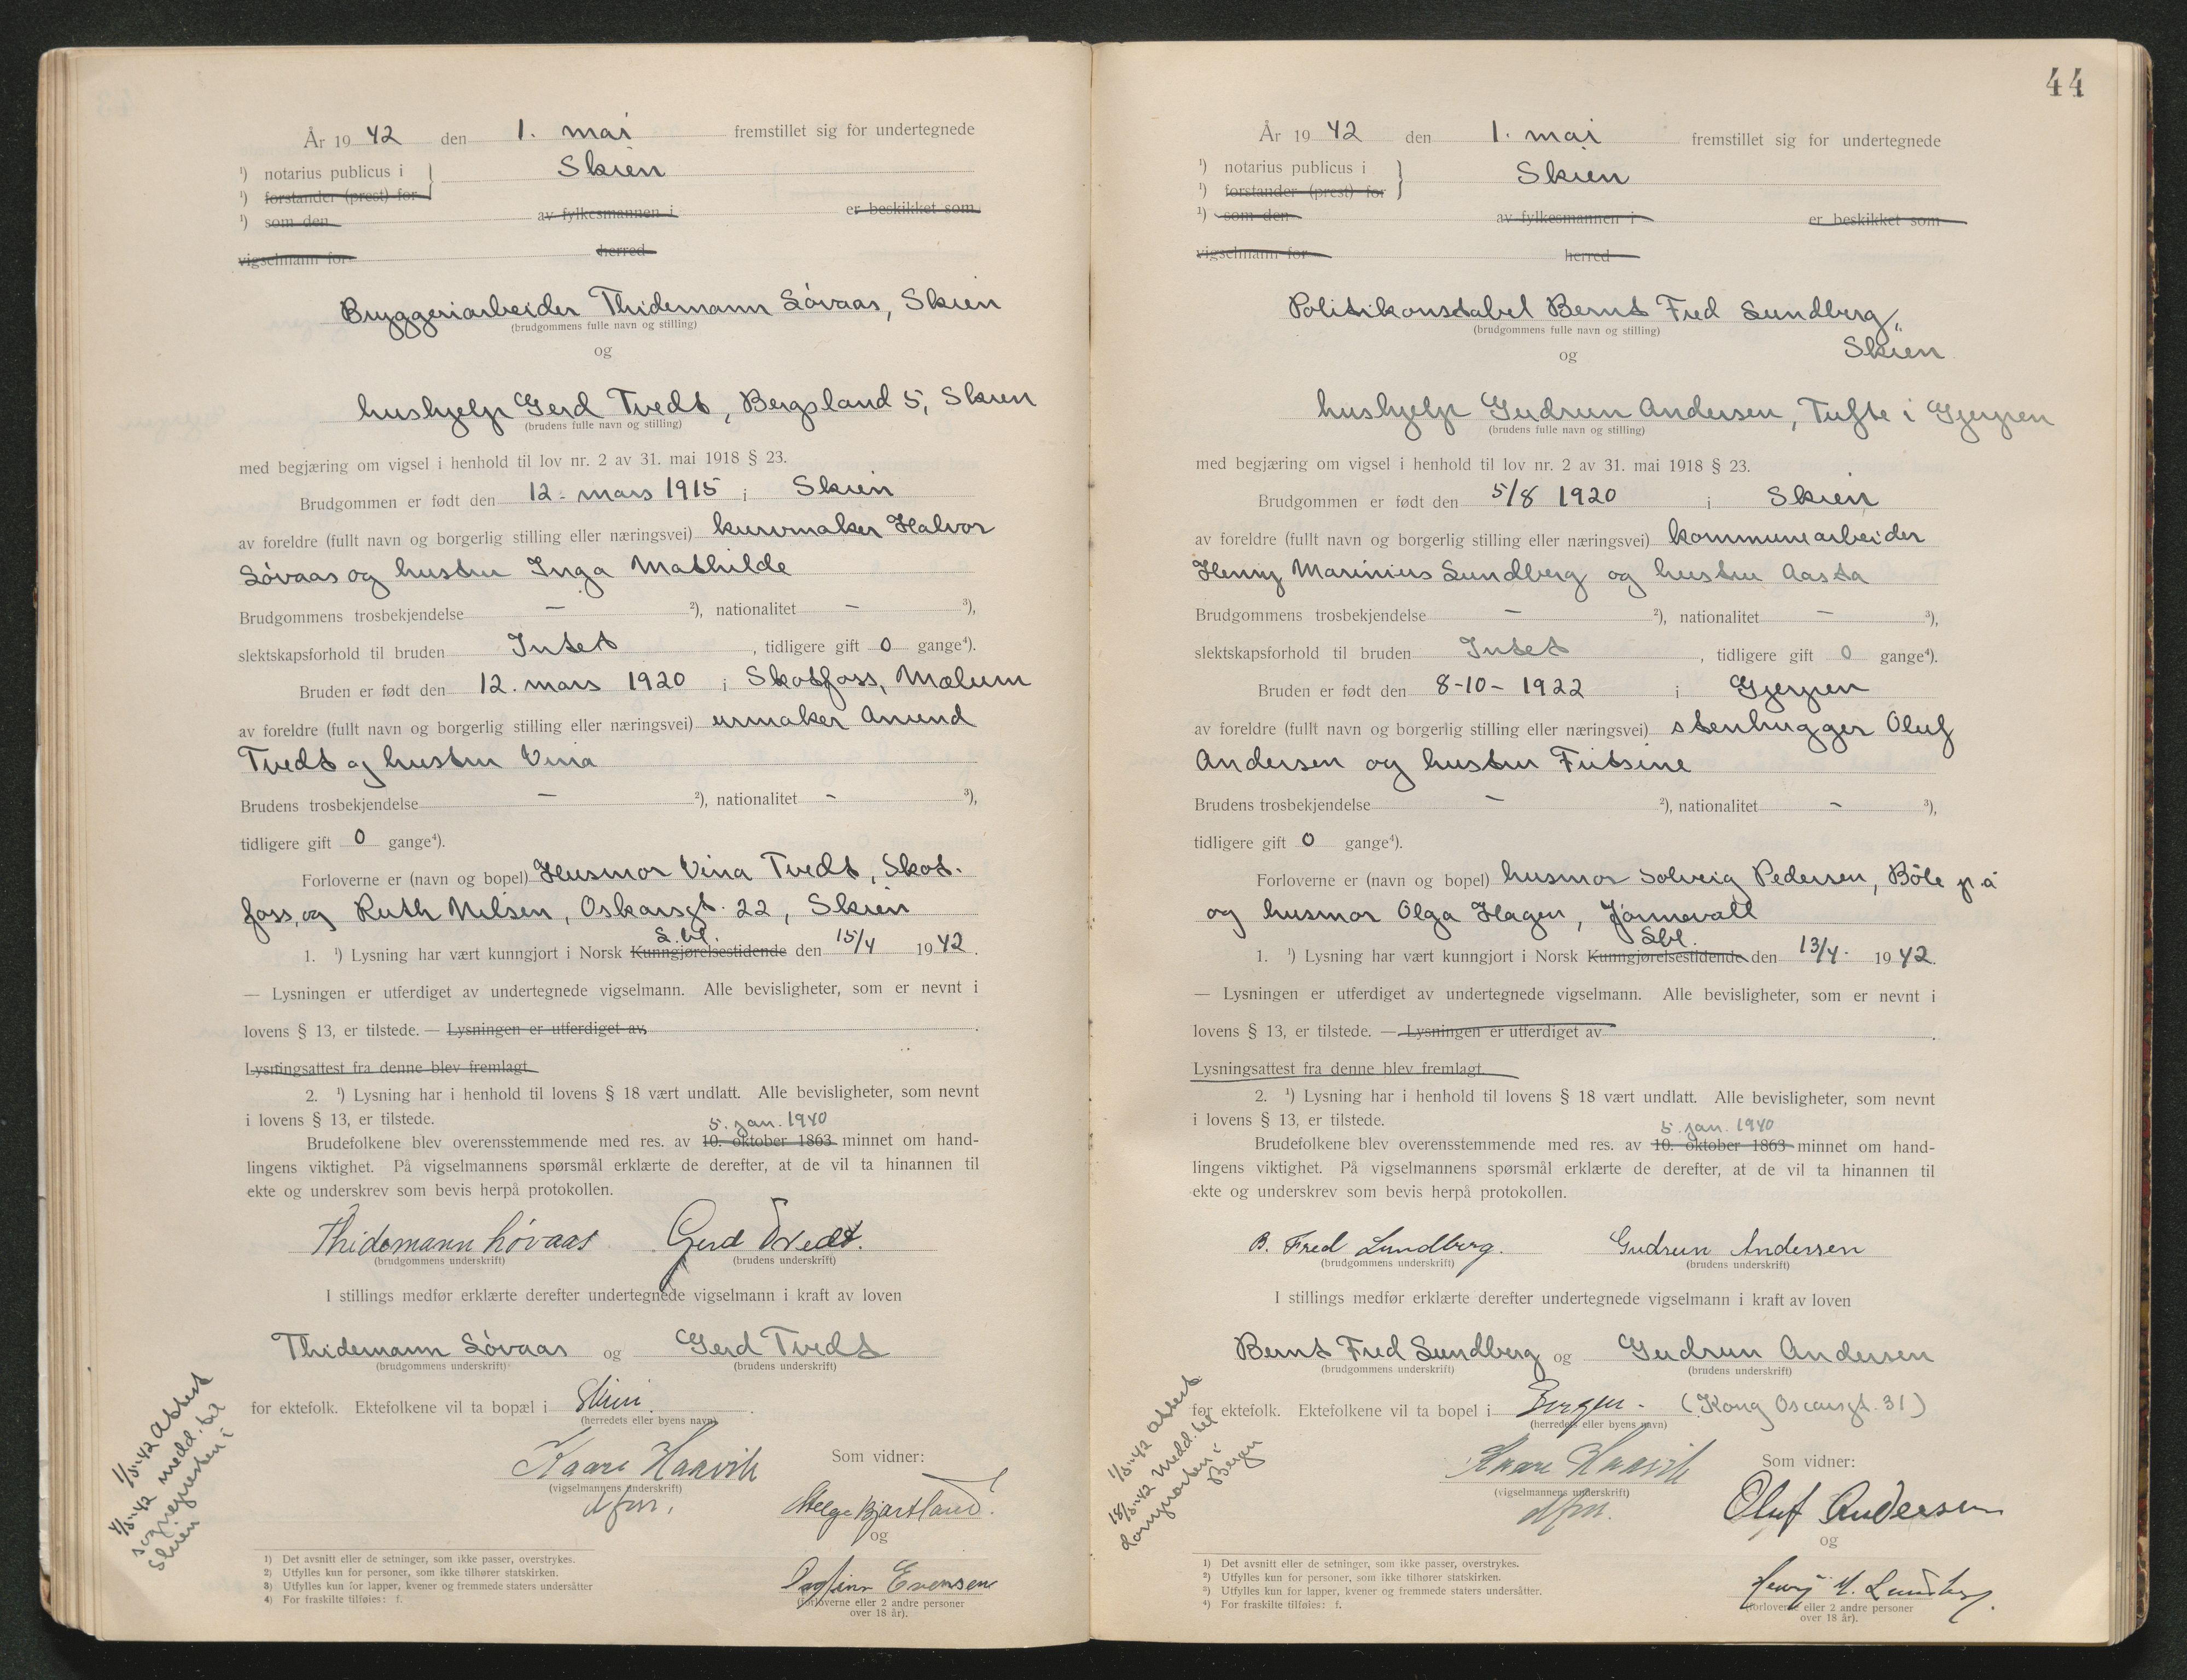 År 1942 den 1. mai fremstillet sig for undertegnede
¹) notarius publicus i } Skien
¹) forstander (prest) for
¹) som den av fylkesmannen i er beskikket som
vigselmann for herred
Bryggeriarbeider Thidemann Løvaas, Skien
(brudgommens fulle navn og stilling)
og
hushjelp Gerd Tvedt, Bergsland 5, Skien
(brudens fulle navn og stilling)
med begjæring om vigsel i henhold til lov nr. 2 av 31. mai 1918 § 23.
Brudgommen er født den 12. mars 1915 i Skien
av foreldre (fullt navn og borgerlig stilling eller næringsvei) kurvmaker Halvor
Løvaas og hustru Inga Mathilde
Brudgommens trosbekjendelse — ²), nationalitet — ³),
slektskapsforhold til bruden Intet, tidligere gift 0 gange⁴).
Bruden er født den 12. mars 1920 i Skotfoss, Mælum
av foreldre (fullt navn og borgerlig stilling eller næringsvei) urmaker Anund
Tvedt og hustru Vina
Brudens trosbekjendelse — ²), nationalitet - ³),
tidligere gift 0 gange⁴).
Forloverne er (navn og bopel) Husmor Vina Tvedt, Skot-
foss, og Ruth Nilsen, Oskarsgt. 22, Skien
S.bl.
1. ¹) Lysning har vært kunngjort i Norsk Kunngjørelsestidende den 15/4 1942.
— Lysningen er utferdiget av undertegnede vigselmann. Alle bevisligheter, som er nevnt i
lovens § 13, er tilstede. — Lysningen er utferdiget av
Lysningsattest fra denne blev fremlagt
2. ¹) Lysning har i henhold til lovens § 18 vært undlatt. Alle bevisligheter, som nevnt
i lovens § 13, er tilstede.
5. jan. 1940
Brudefolkene blev overensstemmende med res. av 10. oktober 1863 minnet om hand-
lingens viktighet. På vigselmannens spørsmål erklærte de derefter, at de vil ta hinannen til
ekte og underskrev som bevis herpå protokollen.
Thidemann Løvaas Gerd Tvedt.
(brudgommens underskrift) (brudens underskrift)
I stillings medfør erklærte derefter undertegnede vigselmann i kraft av loven
Thidemann Løvaas og Gerd Tvedt
(brudgommens underskrift) (brudens underskrift)
for ektefolk. Ektefolkene vil ta bopæl i Skien.
(herredets eller byens navn)
Kaare Haavik
(vigselmannens underskrift)
dfm.
Som vidner:
Helge Bjortland
og
Dagfinn Evensen
(forloverne eller 2 andre personer
over 18 år).
1/5-42 attest
4/5-42 medd. til
sognepresten i
Skien
1) Det avsnitt eller de setninger, som ikke passer, overstrykes.
2) Utfylles kun for personer, som ikke tilhører statskirken.
3) Utfylles kun for lapper, kvener og fremmede staters undersåtter
4) For fraskilte tilføies: f.
44
År 1942 den 1. mai fremstillet sig for undertegnede
¹) notarius publicus i } Skien
¹) forstander (prest) for
¹) som den av fylkesmannen i er beskikket som
vigselmann for herred
Politikonstabel Bernt Fred Lundberg,
Skien
(brudgommens fulle navn og stilling)
og
hushjelp Gudrun Andersen, Tufte i Gjerpen
(brudens fulle navn og stilling)
med begjæring om vigsel i henhold til lov nr. 2 av 31. mai 1918 § 23.
Brudgommen er født den 5/8 1920 i Skien
av foreldre (fullt navn og borgerlig stilling eller næringsvei) kommunearbeider
Henry Marinius Lundberg og hustru Aasta
Brudgommens trosbekjendelse — ²), nationalitet — ³),
slektskapsforhold til bruden Intet, tidligere gift 0 gange⁴).
Bruden er født den 8-10-1922 i Gjerpen
av foreldre (fullt navn og borgerlig stilling eller næringsvei) stenhugger Oluf
Andersen og hustru Fritsine
Brudens trosbekjendelse — ²), nationalitet - ³),
tidligere gift 0 gange⁴).
Forloverne er (navn og bopel) husmor Solveig Pedersen, Bøle på
og husmor Olga Hagen, Jønnevall
Sbl.
1. ¹) Lysning har vært kunngjort i Norsk Kunngjørelsestidende den 13/4. 1942.
— Lysningen er utferdiget av undertegnede vigselmann. Alle bevisligheter, som er nevnt i
lovens § 13, er tilstede. — Lysningen er utferdiget av
Lysningsattest fra denne blev fremlagt
2. ¹) Lysning har i henhold til lovens § 18 vært undlatt. Alle bevisligheter, som nevnt
i lovens § 13, er tilstede.
5. jan. 1940
Brudefolkene blev overensstemmende med res. av 10. oktober 1863 minnet om hand-
lingens viktighet. På vigselmannens spørsmål erklærte de derefter, at de vil ta hinannen til
ekte og underskrev som bevis herpå protokollen.
B. Fred Lundberg. Gudrun Andersen
(brudgommens underskrift) (brudens underskrift)
I stillings medfør erklærte derefter undertegnede vigselmann i kraft av loven
Bernt Fred Lundberg og Gudrun Andersen
(brudgommens underskrift) (brudens underskrift)
for ektefolk. Ektefolkene vil ta bopel i Bergen. (Kong Oscarsgt. 31)
(herredets eller byens navn)
Kaare Haavik
(vigselmannens underskrift)
dfm.
Som vidner:
Oluf Andersen
og
Henry M. Lundberg.
(forloverne eller 2 andre personer
over 18 år).
1/5-42 attest
18/5-42 medd. til
domprosten i
Bergen
1) Det avsnitt eller de setninger, som ikke passer, overstrykes.
2) Utfylles kun for personer, som ikke tilhører statskirken.
3) Utfylles kun for lapper, kvener og fremmede staters undersåtter.
4) For fraskilte tilføies: f.